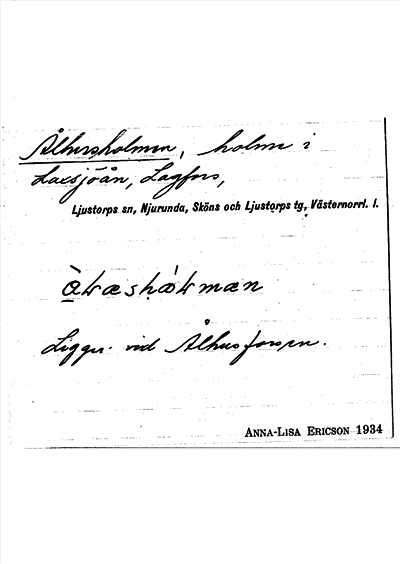 Ålhusholmen, holme i
Laxsjöån, Lagfors,
Ljustorps sn, Njurunda, Sköns och Ljustorps tg, Västernorrl. l.
Ligger vid Ålhusforsen.
ANNA-LISA ERICSON 1934